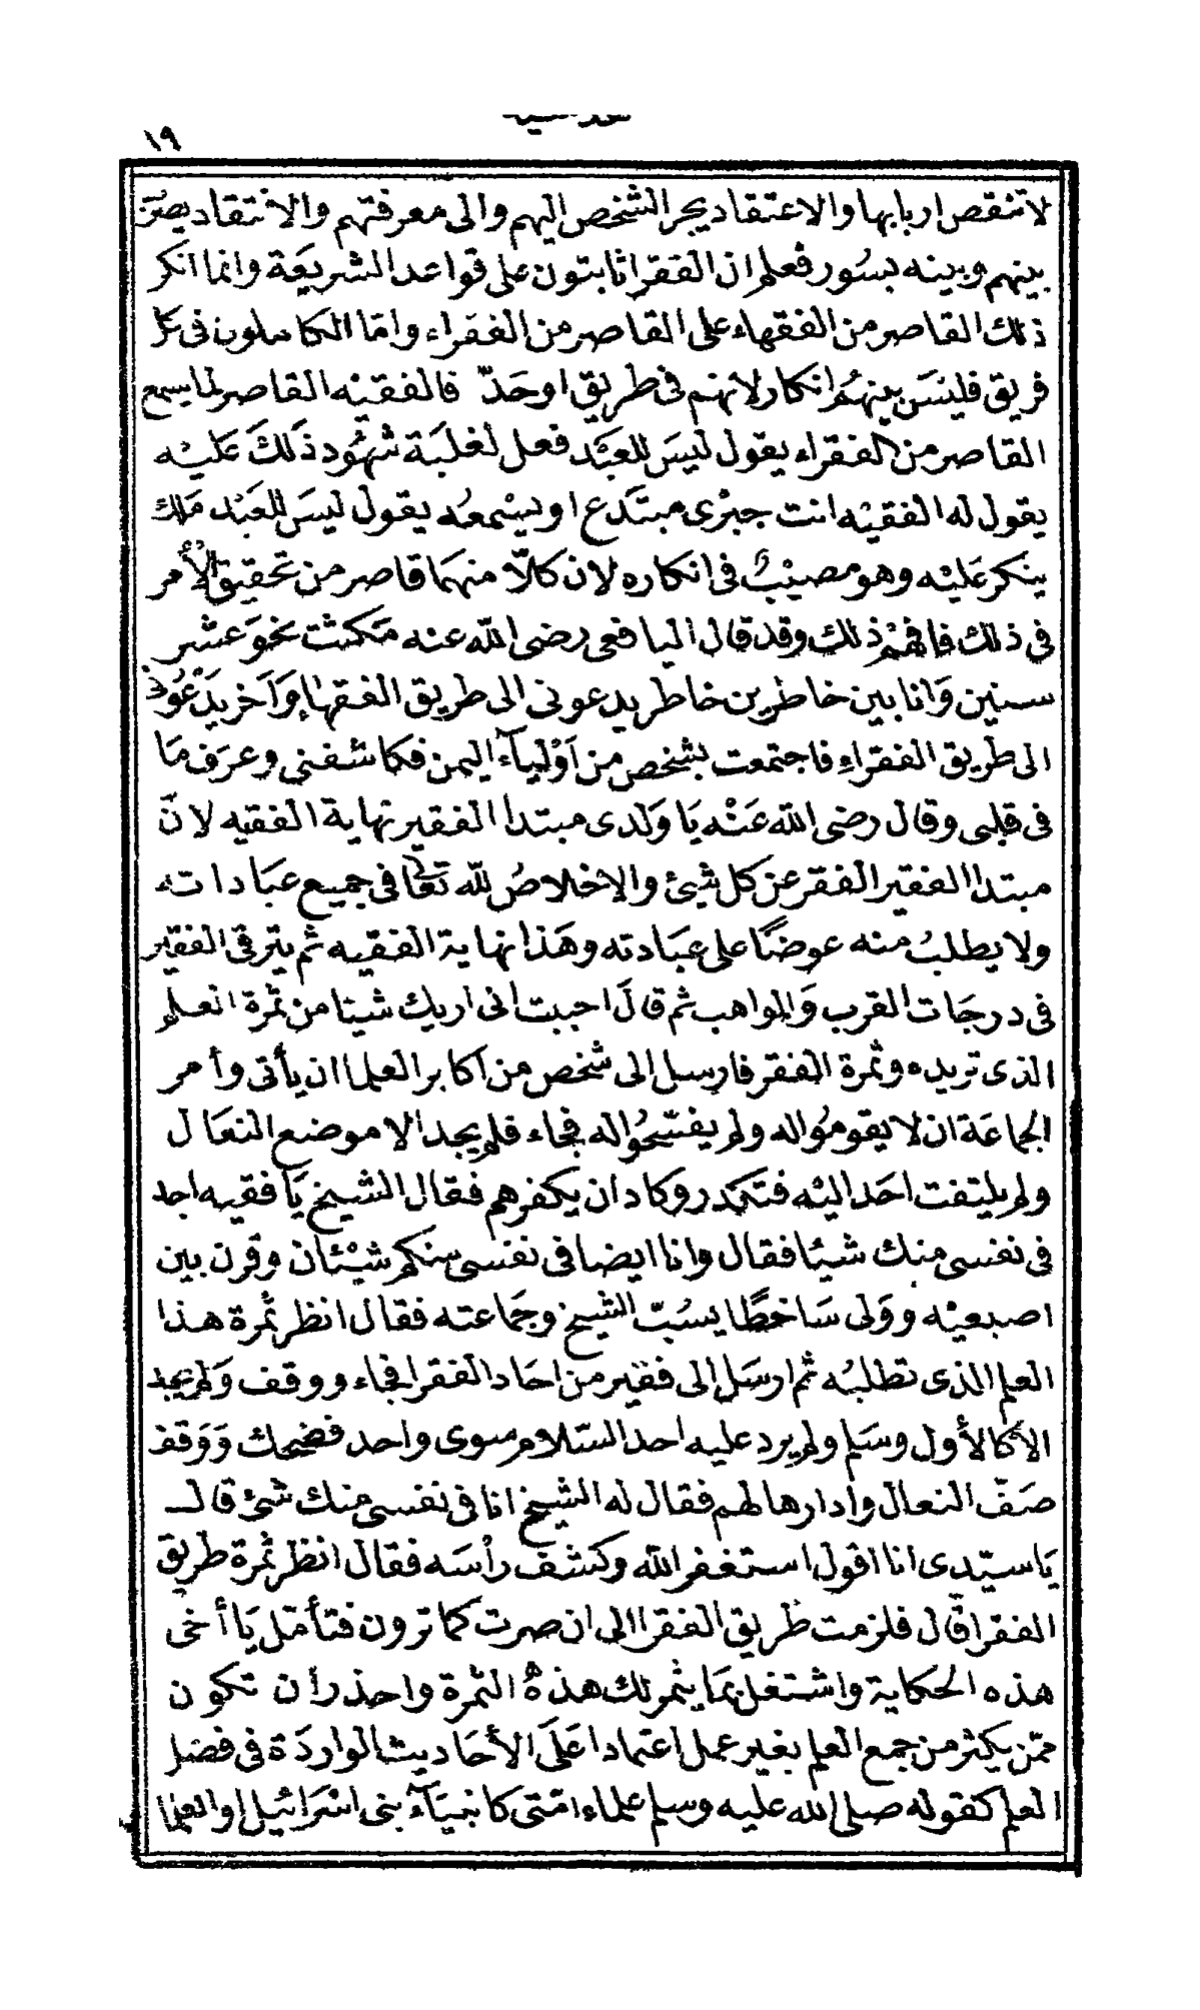 ١٩
لا تنقص اربابها والاعتقاد يجر الشخص اليهم والى معرفتهم والانتقاد يضرب
بينهم وبينه بسُور فعلم ان الفقرا ثابتون على قواعد الشريعَة وانما انكر
ذلك القاصر من الفقهاء على القاصر من الفقراء واما الكاملون فى كل
فريق فليسَ بينهُم انكار لانهم فى طريق اوحَدّ فالفقيْه القاصر لما يسمع
القاصر من الفقراء يقول ليسَ للعبَد فعل لغلبَة شهُود ذَلكَ عَليْه
يقول له الفقيْه انت جبْرى مبتَدع او يسْمعُه يقول ليسَ للعبْد مَلك
ينكر عَليْه وهو مصيْبٌ فى انكاره لان كلّا منهمَا قاصر من تحقيق الأمر
فى ذلك فافهمْ ذلك وقد قال اليافعى رضى الله عنه مَكثت نحوَ عشر
سنين وَانا بين خاطرين خاطر يدعونى الى طريق الفقهاءِ وَآخر يَدْعُونى
الى طريق الفقراءِ فاجتمعت بشخص من اَوْلياَء اليمن فكاشفنى وعرَف مَا
فى قلبى وقال رضى الله عَنْه يَا وَلدى مبتدا الفقير نهاية الفقيه لانّ
مبتدا الفقير الفقر عن كل شئ والاخلاصُ لله تعَالى فى جميع عبَاداته
ولا يطلبُ منه عوضًا على عبَادته وهَذا نهاية الفقيه ثم يترقى الفقير
فى درجَات القرب وَالمواهب ثم قالَ احببت انى اريك شيئا من ثمرة العلم
الذى تريده وثمرة الفقر فارسل الى شخص من اكابر العلما ان يأتى وأمر
الجماعَة ان لا يقومُوا له ولم يفسّحُوا له فجاء فلم يجد الا موضع النعَال
ولم يلتفت احَد اليْه فتكدر وكاد ان يكفرهم فقال الشيخ يَا فقيه اجد
فى نفسى منك شيئا فقال وانا ايضا فى نفسى منكم شيْئان وقرن بين
اصبعيْه وَوَلى سَاخطًا يسُبّ الشيخ وجمَاعته فقال انظر ثمرة هذا
العلم الذى تطلبُه ثم ارسَل الى فقير من احَاد الفقرا فجاء ووقف وَلم يجد
الا كالأول وسَلم ولم يرد عليه احد السَّلام سوى واحد فضحك وَوَقف
صَفّ النعال وأدارها لهم فقال له الشيخ انا فى نفسى منك شئ قال
يَا سيّدى انا اقول استغفر الله وكشف رأسَه فقال انظر ثمرة طريق
الفقرا قال فلزمت طريق الفقرا الى ان صرت كما ترون فتأمّل يَا أخى
هذه الحكاية واشتغل بمَا يثمر لك هذهُ الثمرة واحذر أن تكون
ممّن يكثر من جمع العلم بغير عمل اعتمادا عَلَى الأحَاديث الوارِدَة فى فضل
العلم كقوله صلى الله عليه وسلم علماء امّتى كانبيَآء بنى اسْرَائيل او العلما